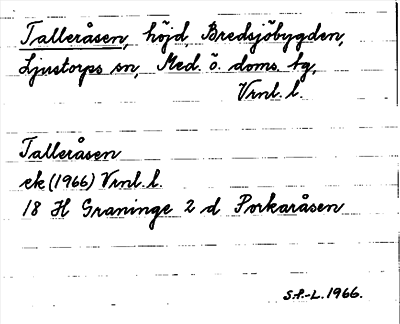 Talleråsen, höjd, Bredsjöbygden,
Ljustorps sn, Med. ö. doms. tg,
Vrnl. l.
Talleråsen
ek (1966) Vrnl. l.
18 H Graninge 2 d Porkaråsen
S.P.-L. 1966.